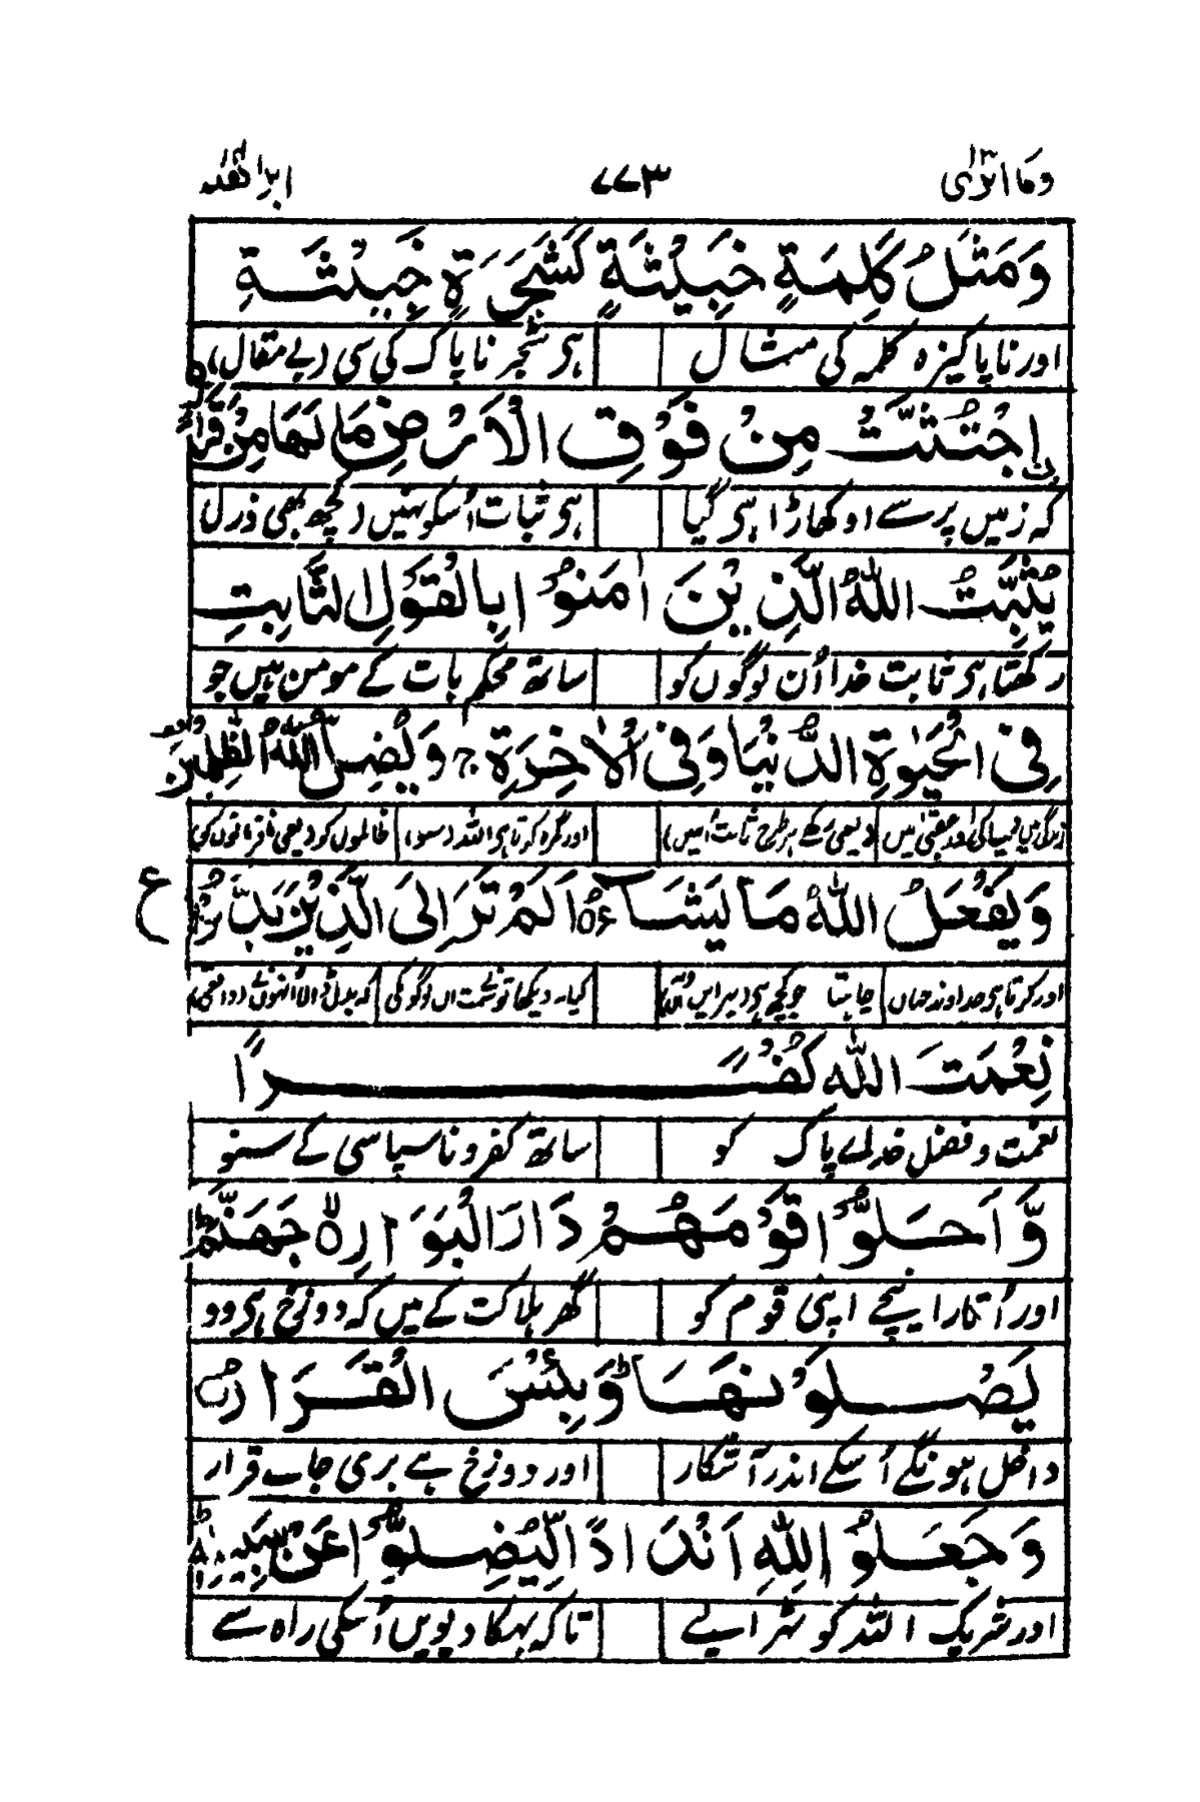 وما ابرئ ١٣ ٧٧٣ ابراهيم ١٤
وَمَثَلُ كَلِمَةٍ خَبِيْثَةٍ كَشَجَرَةٍ خَبِيْثَةِ
اور ناپاکیزہ کلمہ کی مثال ہی شجر ناپاک کی سی (بے مقال)
اِجْتُثَّتْ مِنْ فَوْقِ الْاَرْضِ مَا لَهَا مِنْ قَرَارٍ
کہ زمیں پر سے اوکھاڑا ہی گیا ہی ثبات اُسکو نہیں کچھ بھی ذرا
يُثَبِّتُ اللّٰهُ الَّذِيْنَ اٰمَنُوْا بِالْقَوْلِ الثَّابِتِ
رکھتا ہی ثابت خدا اُن لوگوں کو ساتھ محکم بات کے مومن ہیں جو
فِى الْحَيٰوةِ الدُّنْيَا وَفِى الْاٰخِرَةِ ج وَيُضِلُّ اللّٰهُ الظّٰلِمِيْنَ
زندگی میں دنیا کی اور عقبیٰ میں (یعنی رکھے ہر طرح ثابت اُنہیں) اور گمرہ کرتا ہی اللہ (سنو) ظالموں کو (یعنی نافرمانوں کو)
وَيَفْعَلُ اللّٰهُ مَا يَشَآءُ ع اَلَمْ تَرَ اِلَى الَّذِيْنَ بَدَّلُوْا
اور کرتا ہی خداوند جہاں چاہتا جو کچھ ہی کیا نہ دیکھا تو نے سمت اُن لوگوں کی کہ بدل ڈالا اُنہوں نے
ع
نِعْمَتَ اللّٰهِ كُفْرًا
نعمت و فضل خدائے پاک کو ساتھ کفر و ناسپاسی کے سنو
وَّاَحَلُّوْا قَوْمَهُمْ دَارَ الْبَوَارِ لا جَهَنَّمَ ج
اور اُتارا نیچے اپنی قوم کو گھر ہلاکت کے میں کہ دوزخ ہی وو
يَصْلَوْنَهَا ط وَبِئْسَ الْقَرَارُ
داخل ہونگے اُسکے اندر آشکار اور دوزخ ہے بری جاے قرار
وَجَعَلُوْا لِلّٰهِ اَنْدَادًا لِّيُضِلُّوْا عَنْ سَبِيْلِهٖ ط
اور شریک اللہ کو ٹھرا لیے تاکہ بہکا دیویں اُسکی راہ سے